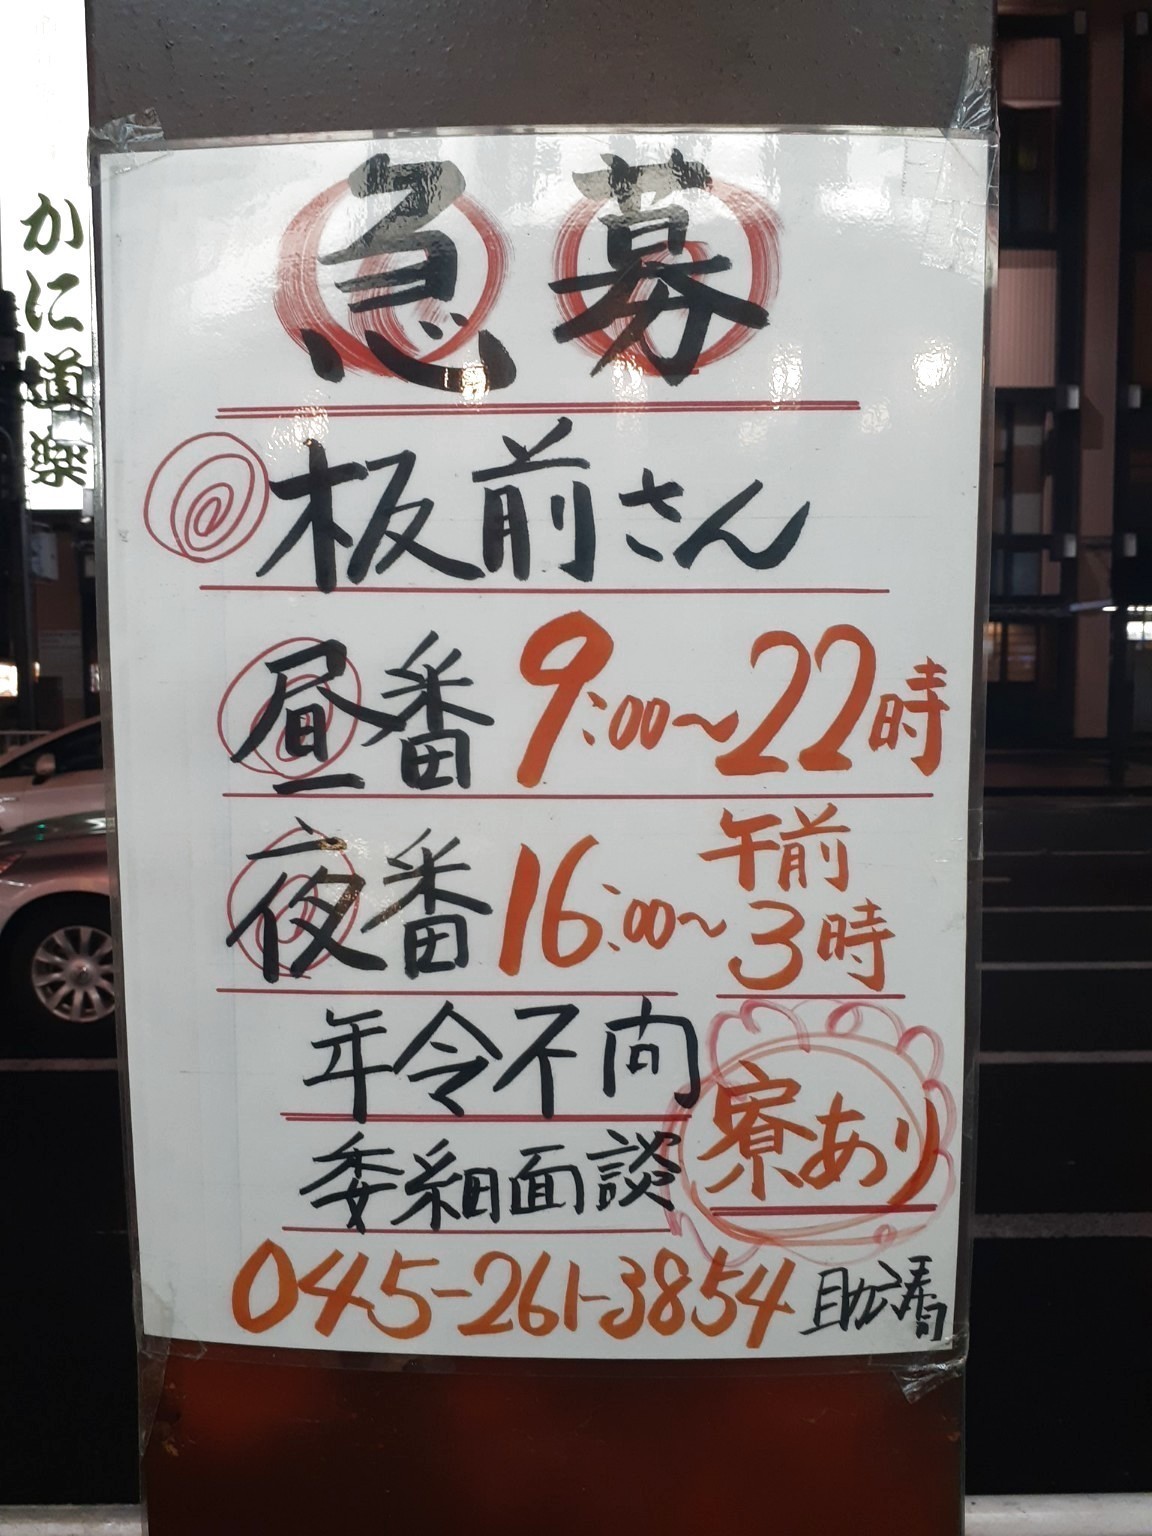 かに道楽
急募
板前さん
昼番 9:00~22時
夜番 16:00~午前3時
年令不问
寮あり
委細面談
045-261-3854 助清